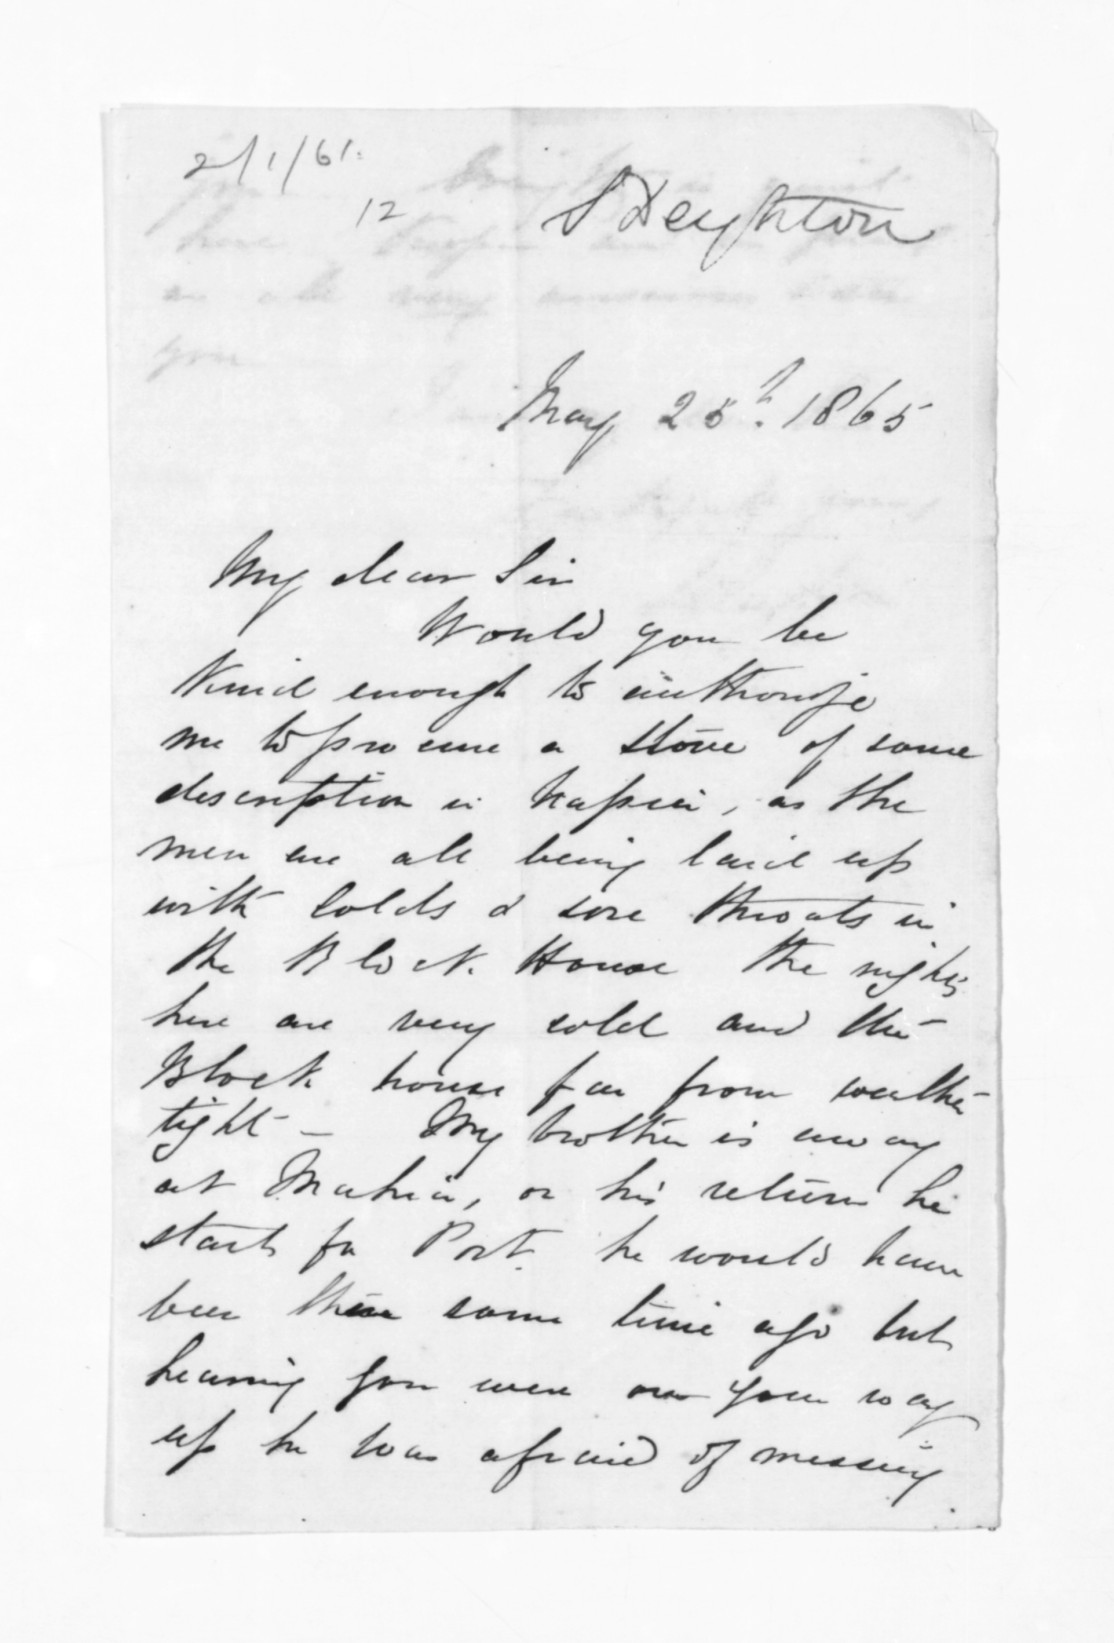 2/1/61.
12
S Deighton
May 25th. 1865
My dear Sir
Would you be
kind enough to authorize
me to procure a stove of some
description in Napier, as the
men are all being laid up
with Colds & sore throats in
the Block House the nights
here are very cold and the
Block house far from weather
tight - My brother is away
at Mahia, on his return he
starts for Port. he would have
been there some time ago but
hearing you were on your way
up he was afraid of missing